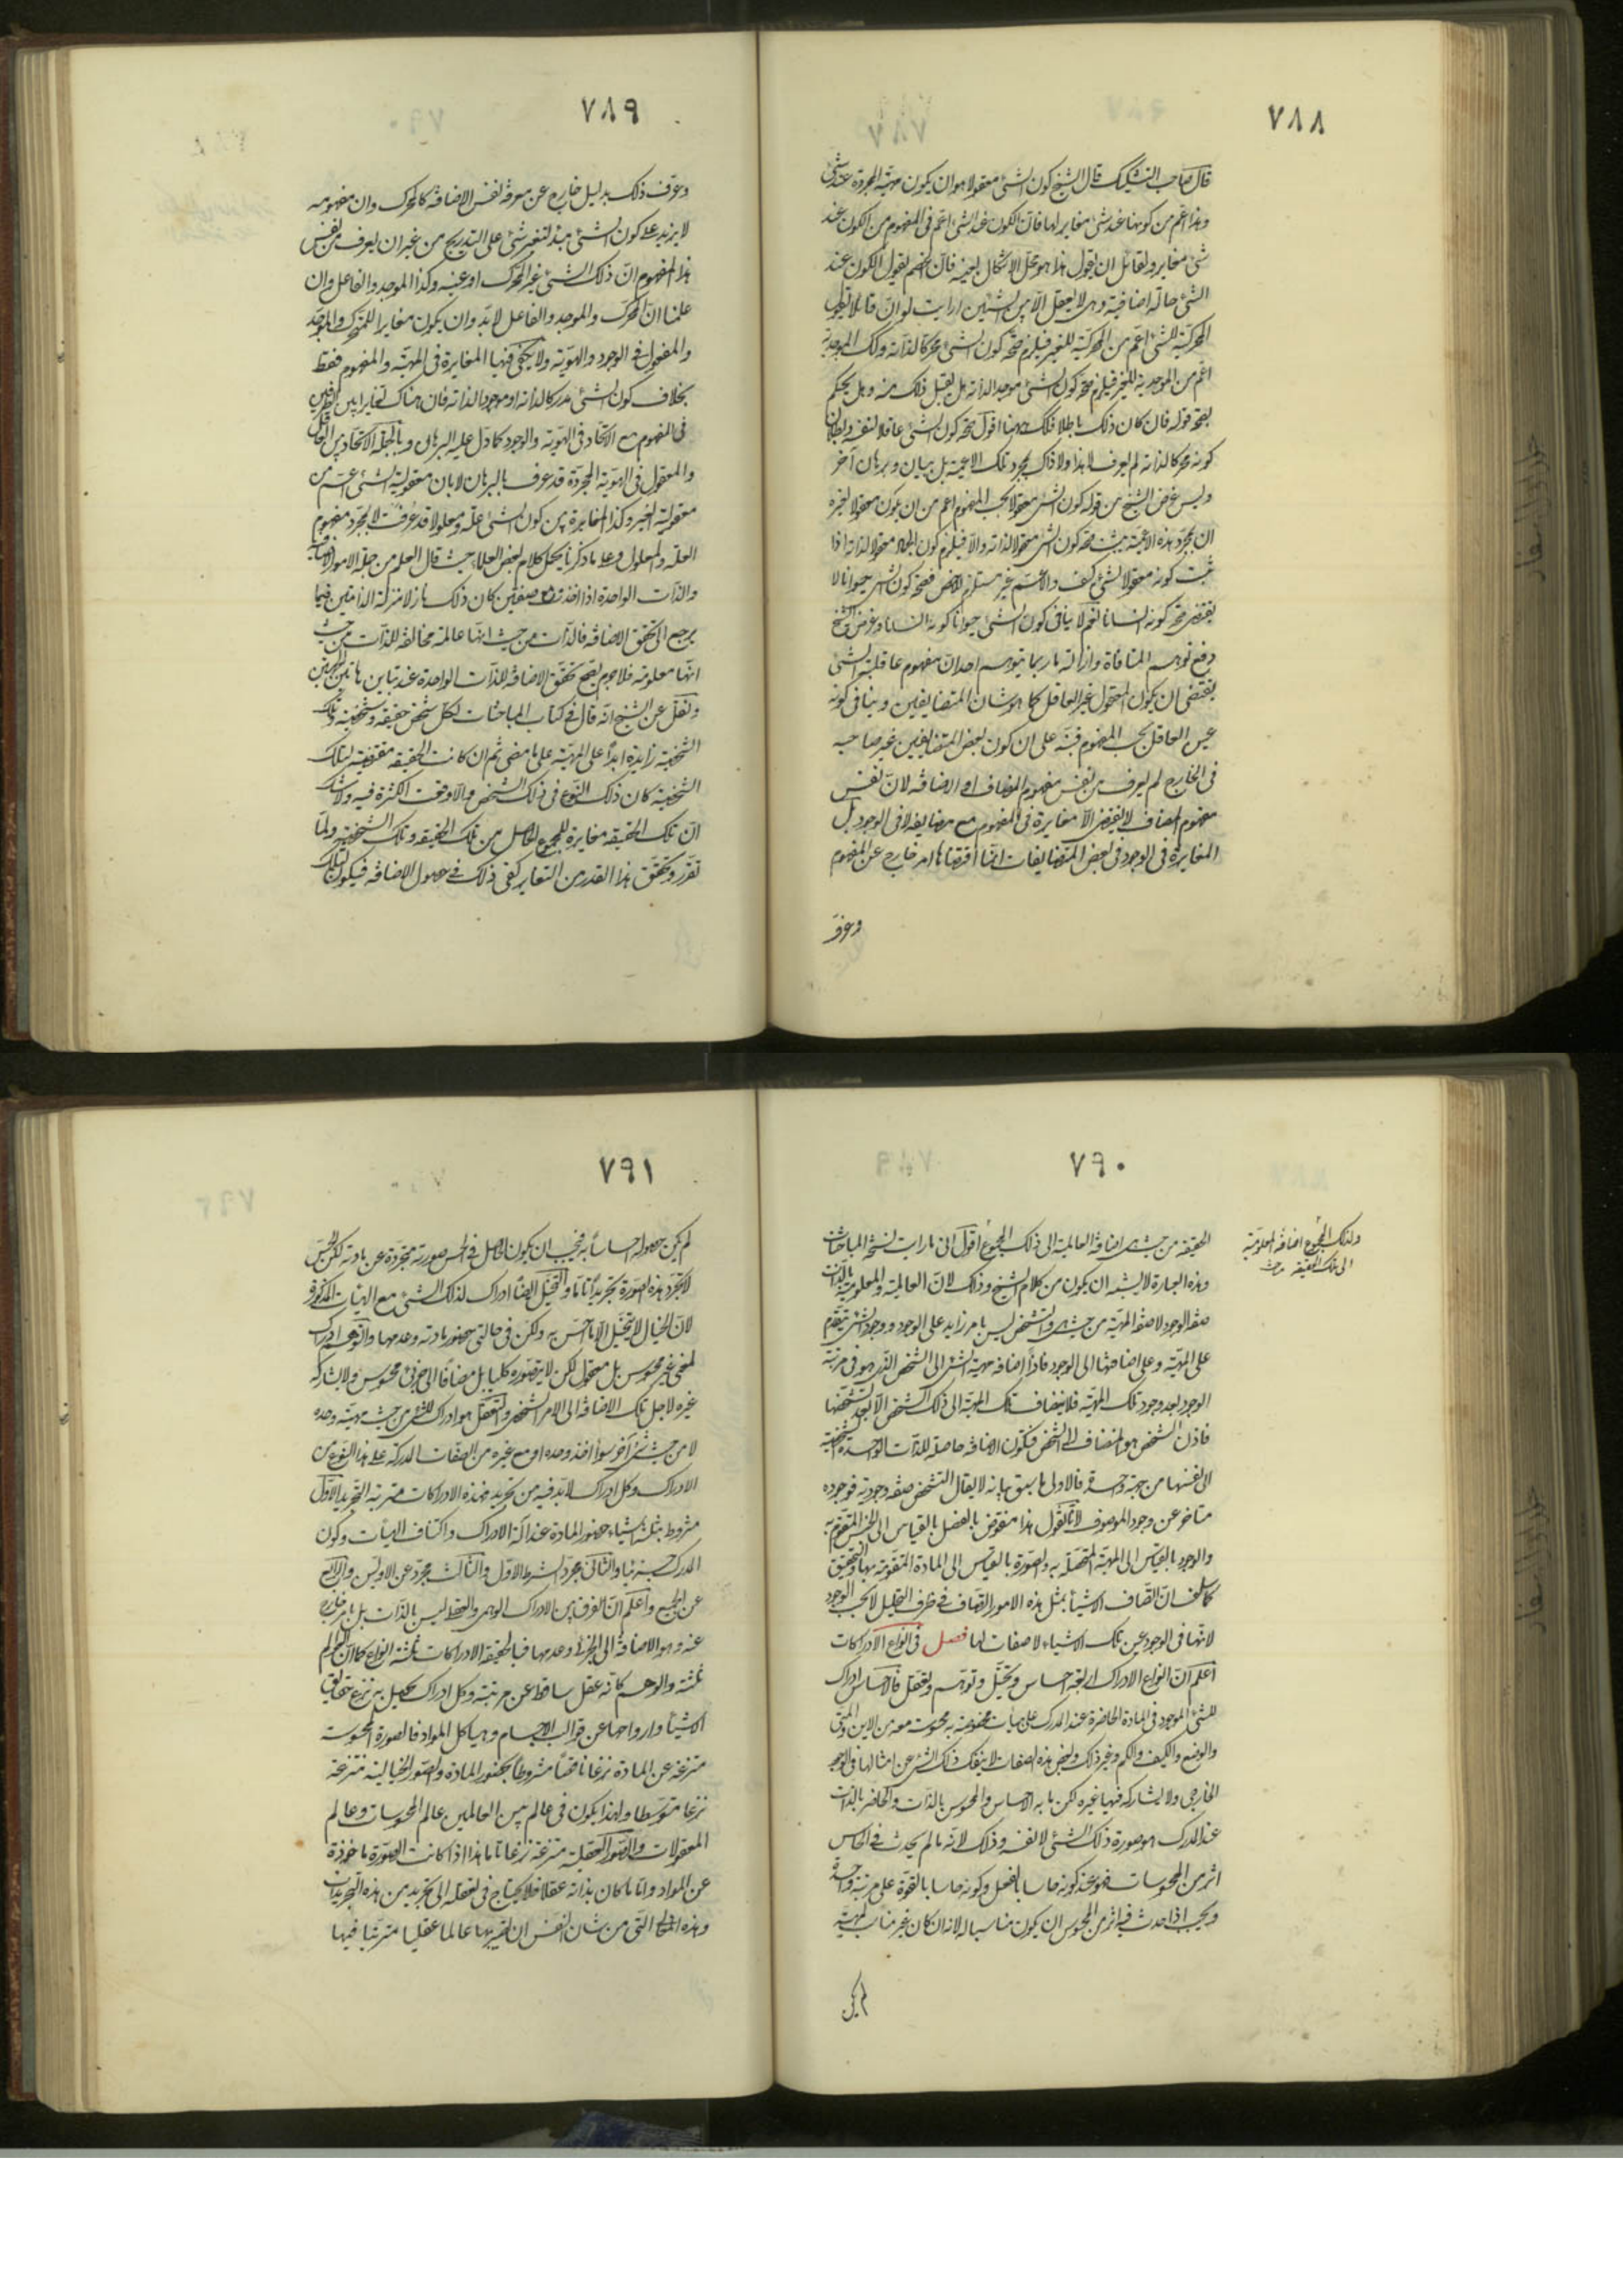 ٧٨٨
قال صاحب التشكيك قال الشيخ كون الشئ معقولا هو ان يكون مهيته المجردة عند شئ
وهذا اعم من كونها عند شئ مغاير لها فان الكون عند الشئ اعم فى المفهوم من الكون عند
شئ مغاير ولقائل ان يقول هذا هو محل الاشكال بعينه فان الخصم يقول الكون عند
الشئ حالة اضافية وهى لا يعقل الا بين الشيئين ارايت لو ان قائلا يقول
المحركية للشئ اعم من المحركية للغير فيلزم صحة كون الشئ محركا لذاته وكذلك الموجدية
اعم من الموجدية للغير فيلزم صحة كون الشئ موجدا لذاته هل يقبل ذلك منه وهل يحكم
بصحة قوله فان كان ذلك باطلا فكذلك هيهنا اقول صحة كون الشئ عاقلا لنفسه وبطلان
كونه محركا لذاته لم يعرف لا هذا ولا ذاك بمجرد تلك الاعمية بل ببيان وبرهان آخر
وليس غرض الشيخ من قوله كون الشئ معقولا بحسب المفهوم اعم من ان يكون معقولا لغيره
ان بمجرد هذه الاعمية يثبت صحة كون الشئ معقولا لذاته والا فيلزم كون الجماد معقولا لذاته اذا
ثبت كونه معقولا لشئ كيف والاعم غير مستلزم للاخص فصحة كون الشئ حيوانا لا
يقتضى صحة كونه انسانا نعم لا ينافى كون الشئ حيوانا كونه انسانا وغرض الشيخ
دفع توهم المنافاة وازالة ما ربما يتوهم احد ان مفهوم عاقلية الشئ
يقتضى ان يكون المعقول غير العاقل كما هو شان المتضايفين وينافى كونه
عين العاقل بحسب المفهوم فنبه على ان كون بعض المتضايفين غير صاحبه
فى الخارج لم يعرف من نفس مفهوم المضاف او الاضافة لان نفس
مفهوم المضاف لا يقتضى الا مغايرة فى المفهوم مع مضايفه لا فى الوجود بل
المغايرة فى الوجود فى بعض المتضايفات انما اقتضاها امر خارج عن المفهوم
وعرف
٧٨٩
وعرف ذلك بدليل خارج عن معرفة نفس الاضافة كالمحرك وان مفهومه
لا يزيد على كون الشئ مبدء لتغير شئ على التدريج من غير ان يعرف من نفس
هذا المفهوم ان ذلك الشئ غير المحرك او عينه وكذا الموجد والفاعل وان
علمنا ان المحرك والموجد والفاعل لا بد وان يكون مغايرا للمتحرك والموجد
والمفعول فى الوجود والهوية ولا يكفى فيها المغايرة فى المهية والمفهوم فقط
بخلاف كون الشئ مدركا لذاته او موجودا لذاته فان هناك تغايرا بين الطرفين
فى المفهوم مع الاتحاد فى الهوية والوجود كما دل عليه البرهان وبالجملة الاتحاد بين العاقل
والمعقول فى الهوية المجردة قد عرف بالبرهان لا بان معقولية الشئ اعم من
معقولية الغير وكذا المغايرة بين كون الشئ علة ومعلولا قد عرفت لا بمجرد مفهوم
العلة والمعلول وعلى ما ذكرنا يحمل كلام بعض العلماء حيث قال العلم من جملة الامور الاضافية
والذات الواحدة اذا اخذت صفتين كان ذلك نازلا منزلة الذاتين فيما
يرجع الى تحقق الاضافة فالذات من حيث انها عالمة مخالفة للذات من حيث
انها معلومة فلا جرم يصح تحقق الاضافة للذات الواحدة عند تباين هاتين الجهتين
ونقل عن الشيخ انه قال فى كتاب المباحثات لكل شخص حقيقة وشخصية وتلك
الشخصية زايدة ابدا على المهية على ما مضى ثم ان كانت الحقيقة مقتضية لتلك
الشخصية كان ذلك النوع فى ذلك الشخص والا وقعت الكثرة فيه ولا شك
ان تلك الحقيقة مغايرة للمجموع الحاصل من تلك الحقيقة وتلك الشخصية ولما
تقرر وتحقق هذا القدر من التغاير كفى ذلك فى حصول الاضافة فيكون لتلك
٧٩٠
الحقيقة من حيث هى اضافة العالمية الى ذلك المجموع اقول انى ما رايت نسخة المباحثات
ولذلك المجموع اضافة المعلومية
الى تلك الحقيقة من حيث
وهذه العبارة لا يشبه ان يكون من كلام الشيخ وذلك لان العالمية والمعلومية بالذات
صفة الوجود لا صفة المهية من حيث هى والتشخص ليس بامر زايد على الوجود ووجود الشئ يتقدم
على المهية وعلى اضافتها الى الوجود فاذا اضافة مهية الشئ الى الشخص الذى هو فى مرتبة
الوجود بعد وجود تلك المهية فلا يضاف تلك المهية الى ذلك الشخص الا بعد تشخصها
فاذن الشخص هو المضاف الى الشخص فتكون الاضافة حاصلة للذات الواحدة الشخصية
الى نفسها من جهة واحدة فالاولى ما سبق بيانه لا يقال التشخص صفة وجودية فوجوده
متاخر عن وجود الموصوف لانا نقول هذا منقوض بالفصل بالقياس الى الجنس المتقوم به
والوجود بالقياس الى المهية المتحصلة به والصورة بالقياس الى المادة المتقومة بها والتحقيق
كما سلف ان اتصاف الاشياء بمثل هذه الامور اتصاف فى ظرف التحليل لا بحسب الوجود
لانها فى الوجود عين تلك الاشياء لا صفات لها فصل فى انواع الادراكات
اعلم ان انواع الادراك اربعة احساس وتخيل وتوهم وتعقل فالاحساس ادراك
للشئ الموجود فى المادة الحاضرة عند المدرك على هيآت مخصوصة به محسوسة معه من الاين والمتى
والوضع والكيف والكم وغير ذلك وبعض هذه الصفات لا ينفك ذلك الشئ عن امثالها فى الوجود
الخارجى ولا يشاركه فيها غيره لكن ما به الاحساس والمحسوس بالذات والحاضر بالذات
عند المدرك هو صورة ذلك الشئ لا نفسه وذلك لانه ما لم يحدث فى الحاس
اثر من المحسوسات فهو عند كونه حاسا بالفعل وكونه حاسا بالقوة على مرتبة واحدة
ويجب اذا حدث فيه اثر من المحسوس ان يكون مناسبا له لانه ان كان غير مناسب لمهيته
لم يكن
٧٩١
لم يكن حصوله احساسا به فيجب ان يكون الحاصل فى الحس صورته مجردة عن مادته لكن الحس
لا يجرد هذه الصورة تجريدا تاما والتخيل ايضا ادراك لذلك الشئ مع الهيئات المذكورة
لان الخيال لا يتخيل الا ما احس به ولكن فى حالتى حضور مادته وعدمها والتوهم ادراك
لمعنى غير محسوس بل معقول لكن لا يتصوره كليا بل مضافا الى جزئى محسوس ولا يشاركه
غيره لاجل تلك الاضافة الى الامر الشخصى والتعقل هو ادراك للشئ من حيث مهيته وحده
لا من حيث شئ آخر سواء اخذ وحده او مع غيره من الصفات المدركة على هذا النوع من
الادراك وكل ادراك لا بد فيه من تجريد فهذه الادراكات مترتبة التجريد الاول
مشروط بثلثة اشياء حضور المادة عند آلة الادراك واكتناف الهيئات وكون
المدرك جزئيا والثانى مجرد عن الشرط الاول والثالث مجرد عن الاولين والرابع
عن الجميع واعلم ان الفرق بين الادراك الوهمى والعقلى ليس بالذات بل بامر خارج
عنه وهو الاضافة الى الجزئى وعدمها فبالحقيقة الادراكات ثلثة انواع كما ان العوالم
ثلثة والوهم كانه عقل ساقط عن مرتبته وكل ادراك يحصل به نزع حقايق
الاشياء وارواحها عن قوالب الاجسام وهياكل المواد فالصورة المحسوسة
منتزعة عن المادة نزعا ناقصا مشروطا بحضور المادة والصور الخيالية منتزعة
نزعا متوسطا ولهذا يكون فى عالم بين العالمين عالم المحسوسات وعالم
المعقولات والصور العقلية منتزعة نزعا تاما هذا اذا كانت الصورة ماخوذة
عن المواد واما ما كان بذاته عقلا فلا يحتاج فى تعقله الى تجريد من هذه التجريدات
وهذه التى من شان النفس ان تصير بها عالما عقليا مترتبا فيها